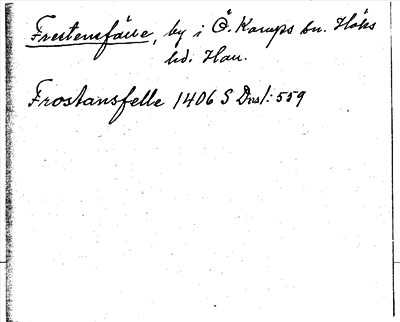 Frestensfälle, by i Ö. Karups sn. Höks
hd. Hall.
Frostansfelle 1406 S Dnsl: 559